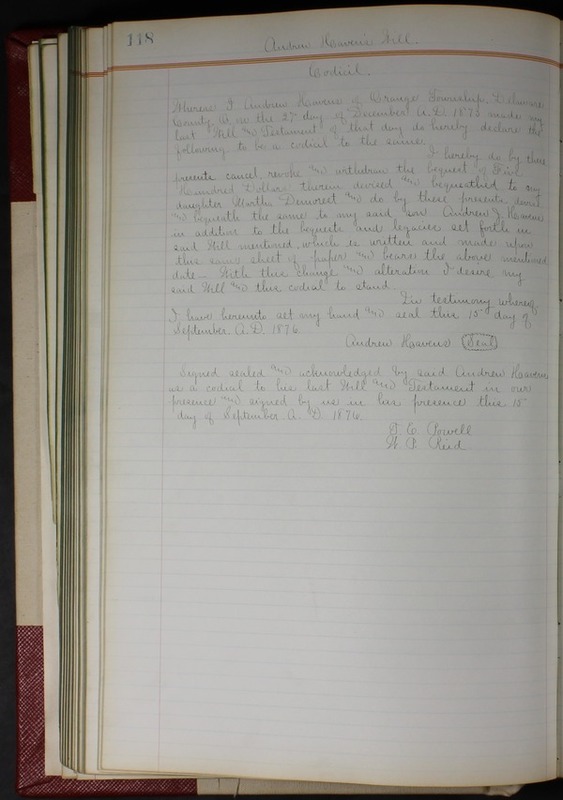 118
Andrew Havens Will.
Codicil.
Whereas I Andrew Havens of Orange Township, Delaware
County, O. on the 27 day of December A.D. 1873 made my
last Will and Testament of that day do hereby declare the
following to be a codial to the same.
I hereby do by these
presents cancel revoke and withdraw the bequest of Five
Hundred Dollars therein devised and bequeathed to my
daughter Martha Dimorest and do by these presents devise
and bequeath the same to my said son Andrew J. Havens
in addition to the bequests and legacies set forth in
said Will mentioned, which is written and made upon
this same sheet of paper and bears the above mentioned
date — With this change and alteration I desire my
said Will and this codial to stand.
In testimony whereof
I have hereunto set my hand and seal this 15" day of
September. A.D. 1876
Andrew Havens Seal
Signed sealed and acknowledged by said Andrew Havens
as a codial to his last Will and Testament in our
presence and signed by us in his presence this 15"
day of September. A. D. 1876.
T. E. Powell
W. P. Reid